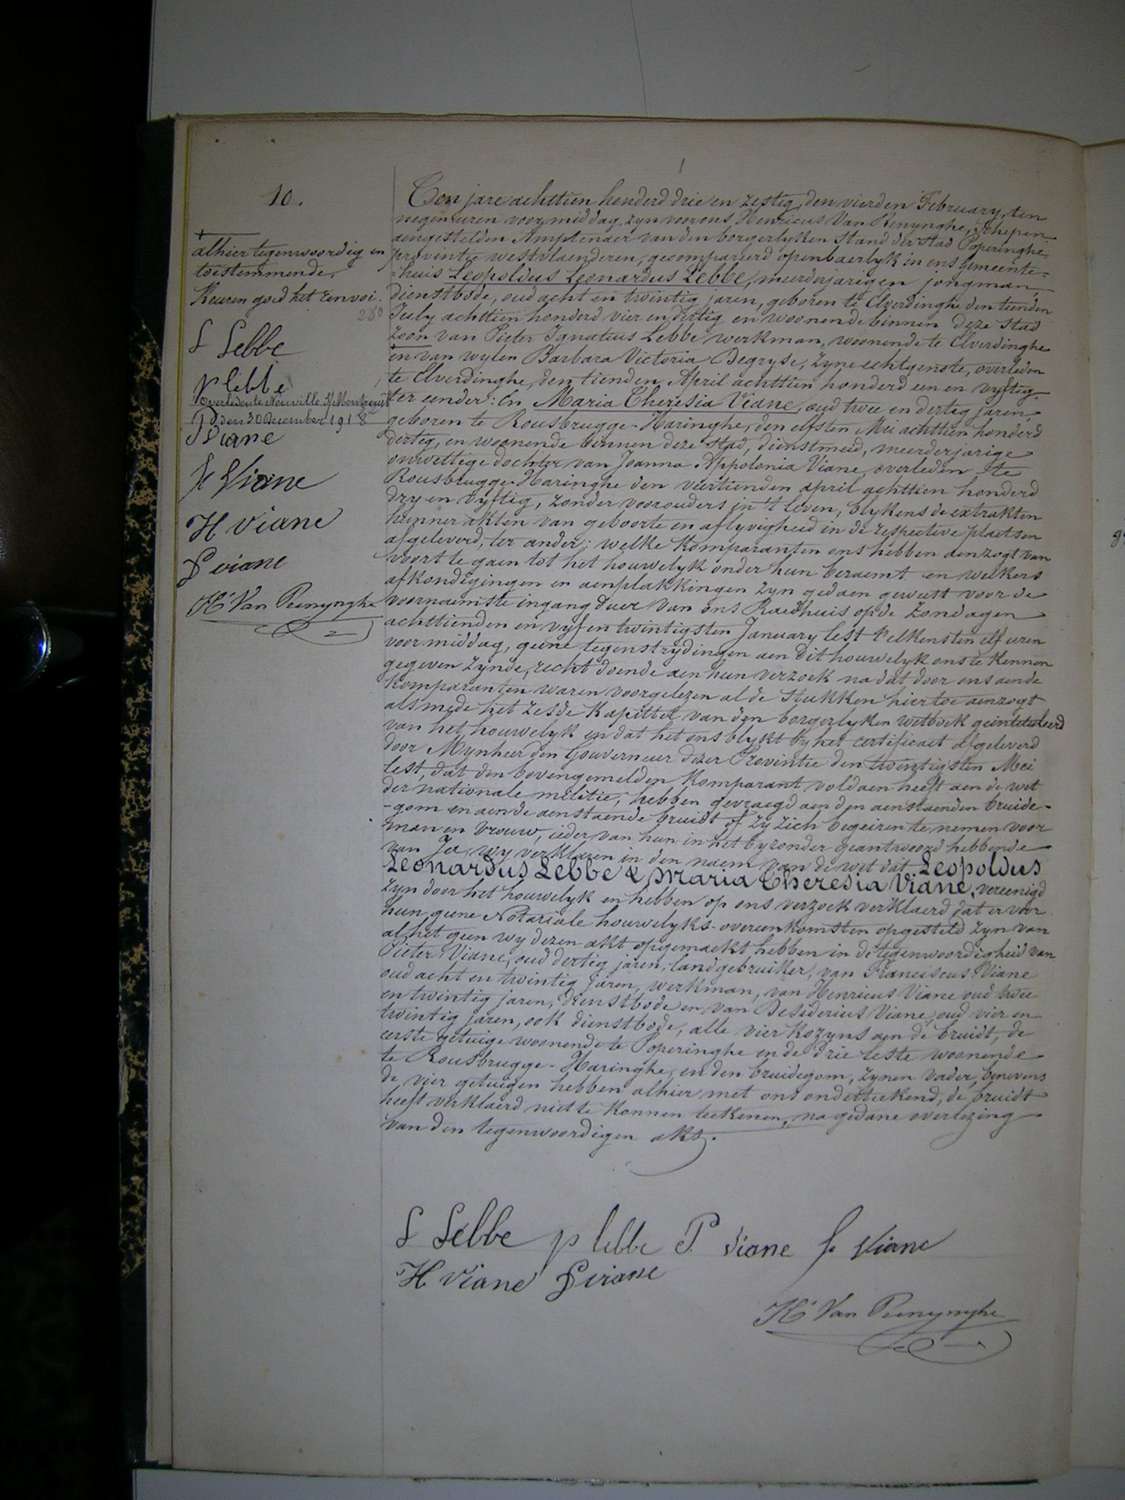 10.
alhier tegenwoordig en
toestemmende.
Keuren goed het renvoi.
280
L Lebbe
p lebbe
overleden te Neuville s/ Montreuil
den 30 December 1918
P Viane
f Viane
H Viane
D viane
Hs Van Renynghe
Ten jare achttien honderd drie en zestig, den vierden February, ten
negen uren voor middag, zyn voor ons Henricus Van Renynghe, Schepen
aengestelden Amptenaer van den borgerlyken stand der stad Poperinghe,
provintie westvlaenderen, gecompareerd openbaerlyk in ons Gemeente-
-huis Leopoldus Leonardus Lebbe, meerderjarigen jongman,
dienstbode, oud acht en twintig jaren, geboren te Elverdinghe den tienden
July achttien honderd vier en dertig en woonende binnen deze stad
zoon van Pieter Ignatius Lebbe werkman, woonende te Elverdinghe
en van wylen Barbara Victoria Degryse, zyne echtgenote, overleden
te Elverdinghe, den tienden April achttien honderd een en vyftig
ter eender: En Maria Theresia Viane, oud twee en dertig jaren,
geboren te Rousbrugge-Haringhe, den elfsten Mei achttien honderd
dertig, en woonende binnen deze stad, dienstmeid, meerderjarige
onwettige dochter van Joanna Appolonia Viane, overleden te
Rousbrugge-Haringhe den viertienden april achttien honderd
dry en vyftig, zonder voorouders in 't leven, blykens de extrakten
hunner akten van geboorte en aflyvigheid in de respective plaetsen
afgeleverd, ter ander; welke komparanten ons hebben aenzogt van
voort te gaen tot het houwelyk onder hun beraemt en welkers
afkondigingen en aenplakkingen zyn gedaen geweest voor de
voornaemste ingang duer van ons Raedhuis op de zondagen
achttienden en vyf en twintigsten January lest t'elkensten elf uren
voor middag, geene tegenstrydingen aen dit houwelyk ons te kennen
gegeven zynde, recht doende aen hun verzoek na dat door ons aende
komparanten waren voorgelezen al de stukken hier toe aenzogt
alsmede het zesde kapittel van den borgerlyken wetboek geintituleerd
van het houwelyk en dat het ons blykt by het certificaet afgeleverd
door Mynheer den Gouverneur dezer Provintie den twintigsten Mei
lest, dat den bovengemelden komparant voldaen heeft aen de wet
der nationale militie, hebben gevraegd aen den aenstaenden bruide-
-gom en aen de aenstaende bruidt of zy zich begeiren te nemen voor
man en vrouw, ieder van hun in het byzonder geantwoord hebbende
van Ja, wy verklaren in den naem van de wet dat Leopoldus
Leonardus Lebbe & Maria Theresia Viane, vereenigd
zyn door het houwelyk en hebben op ons verzoek verklaerd dat er voor
hun geene Notariale houwelyks-overeenkomsten opgesteld zyn van
al het geen wy dezen akt opgemaekt hebben in de tegenwoordigheid van
Pieter Viane, oud dertig jaren, landgebruiker, van Franciscus Viane
oud acht en twintig jaren, werkman, van Henricus Viane oud twee
en twintig jaren, dienstbode en van Desiderius Viane, oud vier en
twintig jaren, ook dienstbode, alle vier kozyns aen de bruidt, de
eerste getuige woonende te Poperinghe en de drie leste woonende
te Rousbrugge-Haringhe, en den bruidegom, zynen vader, benevens
de vier getuigen hebben alhier met ons onderteekend, de bruidt
heeft verklaerd niet te konnen teekenen, na gedane overlezing
van den tegenwoordigen akt.
L Lebbe p lebbe P. Viane f. Viane
H Viane D viane
Hs Van Renynghe